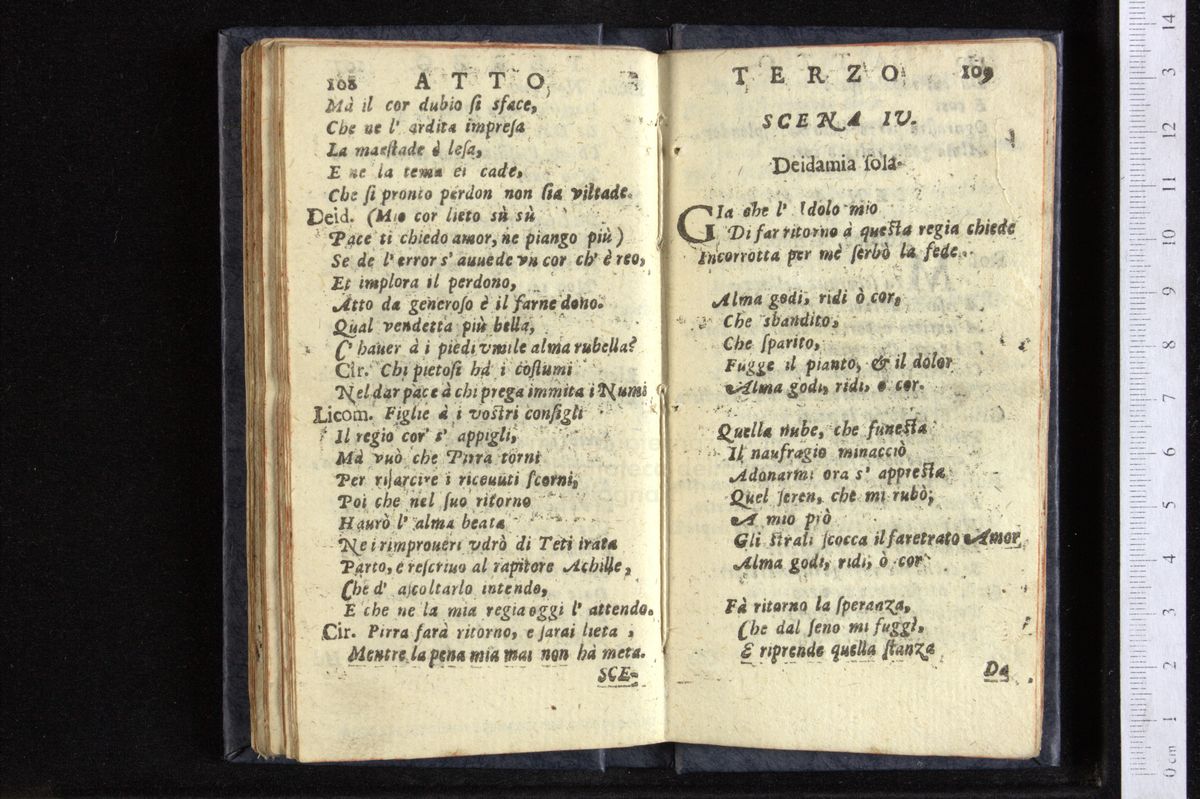 108 ATTO
Mà il cor dubio ſi sface,
Che ne l' ardita impreſa
La maeſtade è leſa,
E ne la tema ei cade,
Che ſi pronto perdon non ſia viltade.
Deid. (Mio cor lieto sù sù
Pace ti chiedo amor, ne piango più)
Se de l'error s' auuede vn cor ch' è reo,
Et implora il perdono,
Atto da generoſo è il farne dono.
Qual vendetta più bella,
C' hauer à i piedi vmile alma rubella?
Cir. Chi pietoſi hà i coſtumi
Nel dar pace à chi prega immita i Numi
Licom. Figlie à i voſtri conſigli
Il regio cor s' appigli,
Mà vuò che Pirra torni
Per riſarcire i riceuuti ſcorni,
Poi che nel ſuo ritorno
Haurò l' alma beata
Ne i rimproueri vdrò di Teti irata
Parto, e reſcriuo al rapitore Achille,
Che d' aſcoltarlo intendo,
E che ne la mia regia oggi l' attendo.
Cir. Pirra farà ritorno, e ſarai lieta,
Mentre la pena mia mai non hà meta.
SCE-
TERZO 109
SCENA IV.
Deidamia ſola.
GIa che l' Idolo mio
Di far ritorno à queſta regia chiede
Incorrotta per mè ſerbò la fede.
Alma godi, ridi ò cor,
Che sbandito,
Che ſparito,
Fugge il pianto, & il dolor
Alma godi, ridi, o cor.
Quella nube, che funeſta
Il naufragio minacciò
Adonarmi ora s' appreſta
Quel ſeren, che mi rubò;
A mio prò
Gli ſtrali ſcocca il faretrato Amor
Alma godi, ridi, ò cor
Fà ritorno la ſperanza,
Che dal ſeno mi fuggì,
E riprende quella ſtanza
Da